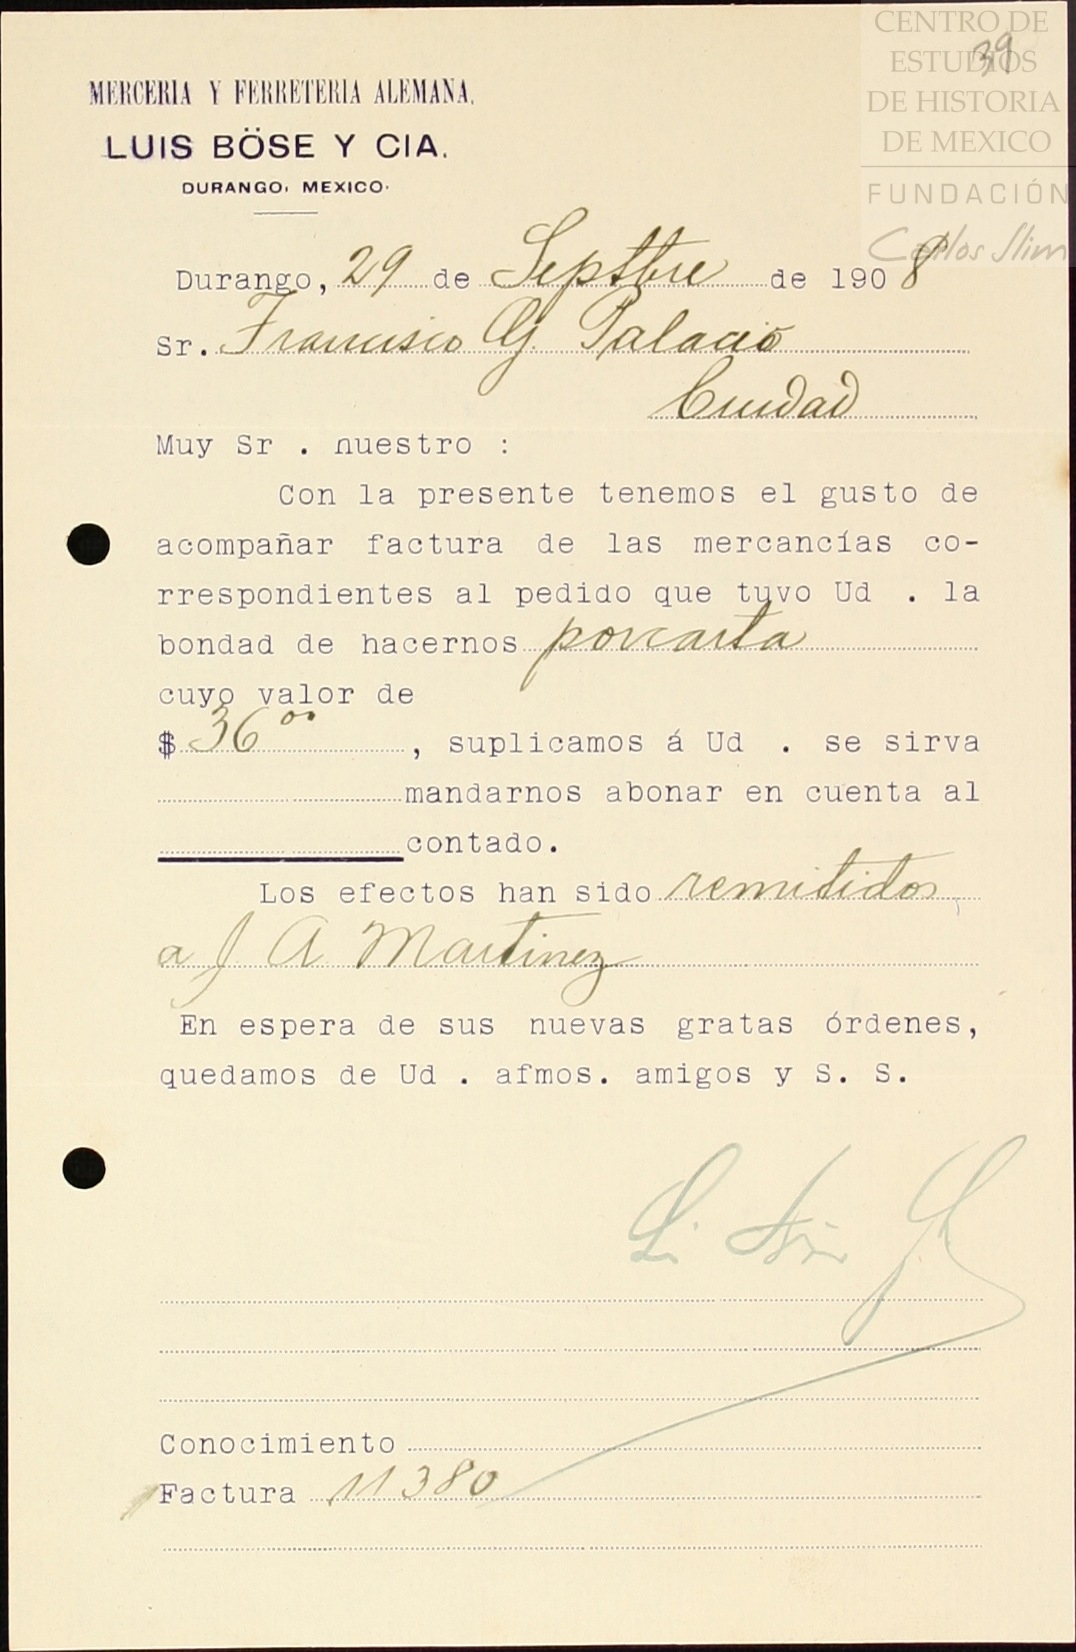 CENTRO DE
ESTUDIOS
DE HISTORIA
DE MEXICO
FUNDACIÓN
Carlos Slim
39
MERCERIA Y FERRETERIA ALEMANA.
LUIS BÖSE Y CIA.
DURANGO, MEXICO.
Durango, 29 de Septbre de 1908
Sr. Francisco G. Palacio
Ciudad
Muy Sr . nuestro :
Con la presente tenemos el gusto de
acompañar factura de las mercancías co-
rrespondientes al pedido que tuvo Ud . la
bondad de hacernos por carta
cuyo valor de
$ 36 00 , suplicamos á Ud . se sirva
mandarnos abonar en cuenta al
contado.
Los efectos han sido remitidos
a J A Martinez
En espera de sus nuevas gratas órdenes,
quedamos de Ud . afmos. amigos y S. S.
Conocimiento
Factura 11380